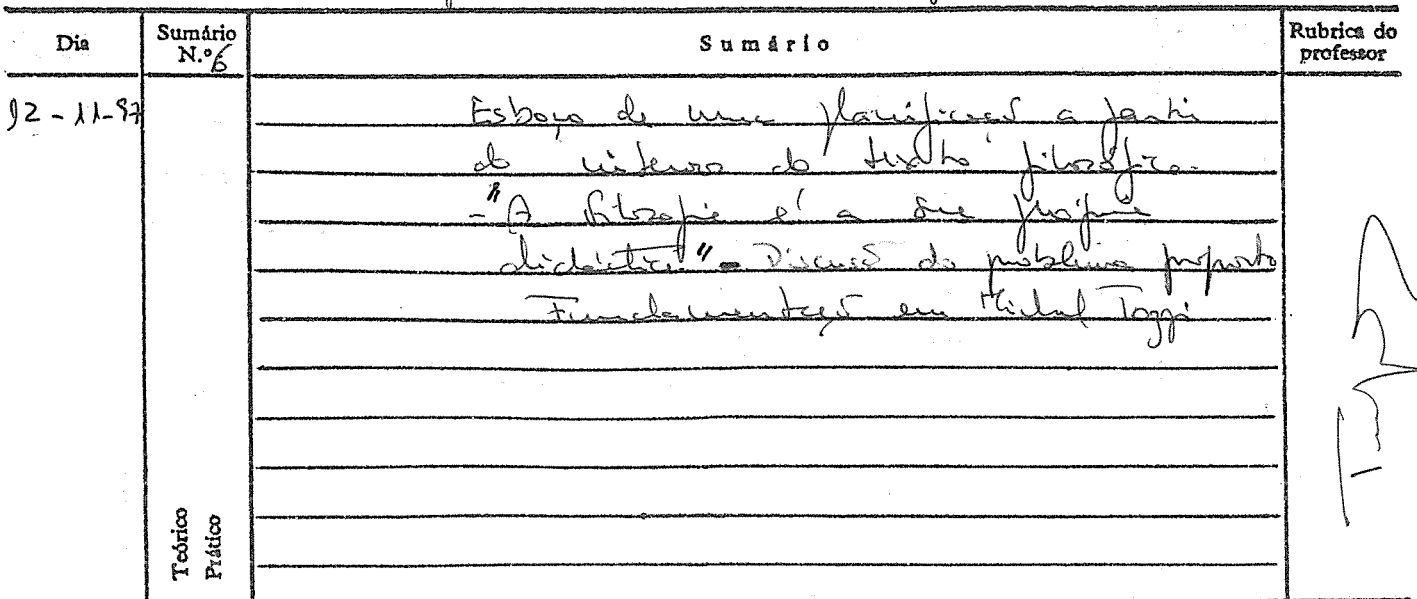 Dia
Sumário
N.º 6
Sumário
Rubrica do
professor
12-11-97
Esboço de uma planificação a partir
do universo do texto filosófico.
- "A filosofia é a sua própria
didáctica" - Discussão do problema proposto
Fundamentação em Michel Tozzi
Teórico
Prático